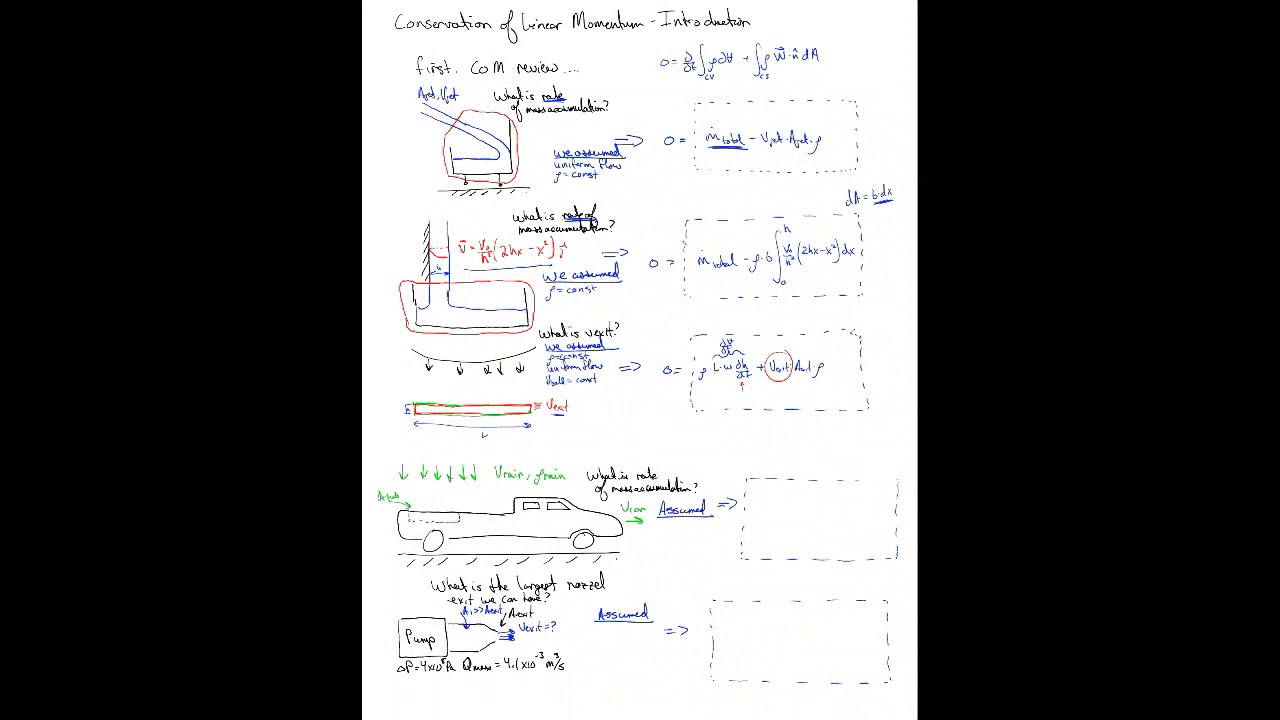 Conservation of Linear Momentum - Introduction
first. CoM review....
0 = ∂/∂t ∫cv ρ d∀ + ∫cs ρ W⃗·n̂ dA
Ajet, Vjet
What is rate
of mass accumulation?
we assumed
uniform flow
ρ = const
=> 0 = ṁtotal - Vjet·Ajet·ρ
dA = b·dx
What is rate of
mass accumulation?
V⃗ = V₀/h² (2hx - x²) ĵ
h
we assumed
ρ = const
=> 0 = ṁtotal - ρ·b ∫₀ʰ V₀/h² (2hx - x²) dx
What is vexit?
we assumed
ρ = const
uniform flow
= const
d∀/dt
=> 0 = ρ L·w dh/dt + Vexit·Aexit·ρ
h
Vexit
L
Vrain, ρrain
What is rate
of mass accumulation?
Vcar
Assumed =>
What is the largest nozzel
exit we can have?
A₁>>Aexit
Aexit
Vexit = ?
Pump
Assumed
=>
ΔP = 4x10⁵ Pa Qmax = 4.1x10⁻³ m³/s